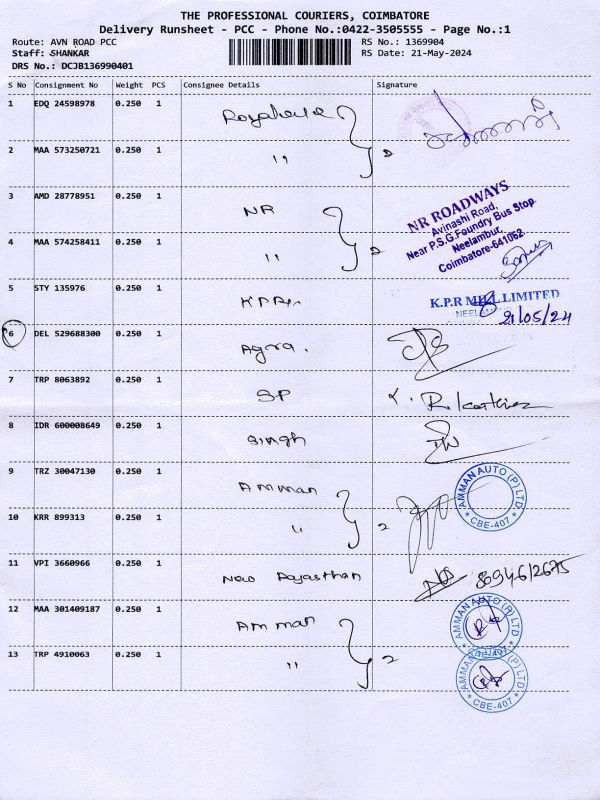 THE PROFESSIONAL COURIERS, COIMBATORE
Delivery Runsheet - PCC - Phone No.:0422-3505555 - Page No.:1
Route: AVN ROAD PCC RS No.: 1369904
Staff: SHANKAR RS Date: 21-May-2024
DRS No.: DCJB136990401
S No Consignment No Weight PCS Consignee Details Signature
1 EDQ 24598978 0.250 1
2 MAA 573250721 0.250 1 " 2
3 AMD 28778951 0.250 1 NR
4 MAA 574258411 0.250 1 " 2
NR ROADWAYS
Avinashi Road,
Near P.S.G.Foundry Bus Stop
Neelambur,
Coimbatore-641062
5 STY 135976 0.250 1
K.P.R MILL LIMITED
21/05/24
6 DEL 529688300 0.250 1 Agra.
7 TRP 8063892 0.250 1 SP
8 IDR 600008649 0.250 1 Singh
9 TRZ 30047130 0.250 1 Amman
AMMAN AUTO (P) LTD
* CBE-407 *
10 KRR 899313 0.250 1 " 2
11 VPI 3660966 0.250 1 New Rajasthan
12 MAA 301409187 0.250 1 Amman
AMMAN AUTO (P) LTD
13 TRP 4910063 0.250 1 " 2
AMMAN AUTO (P) LTD
* CBE-407 *